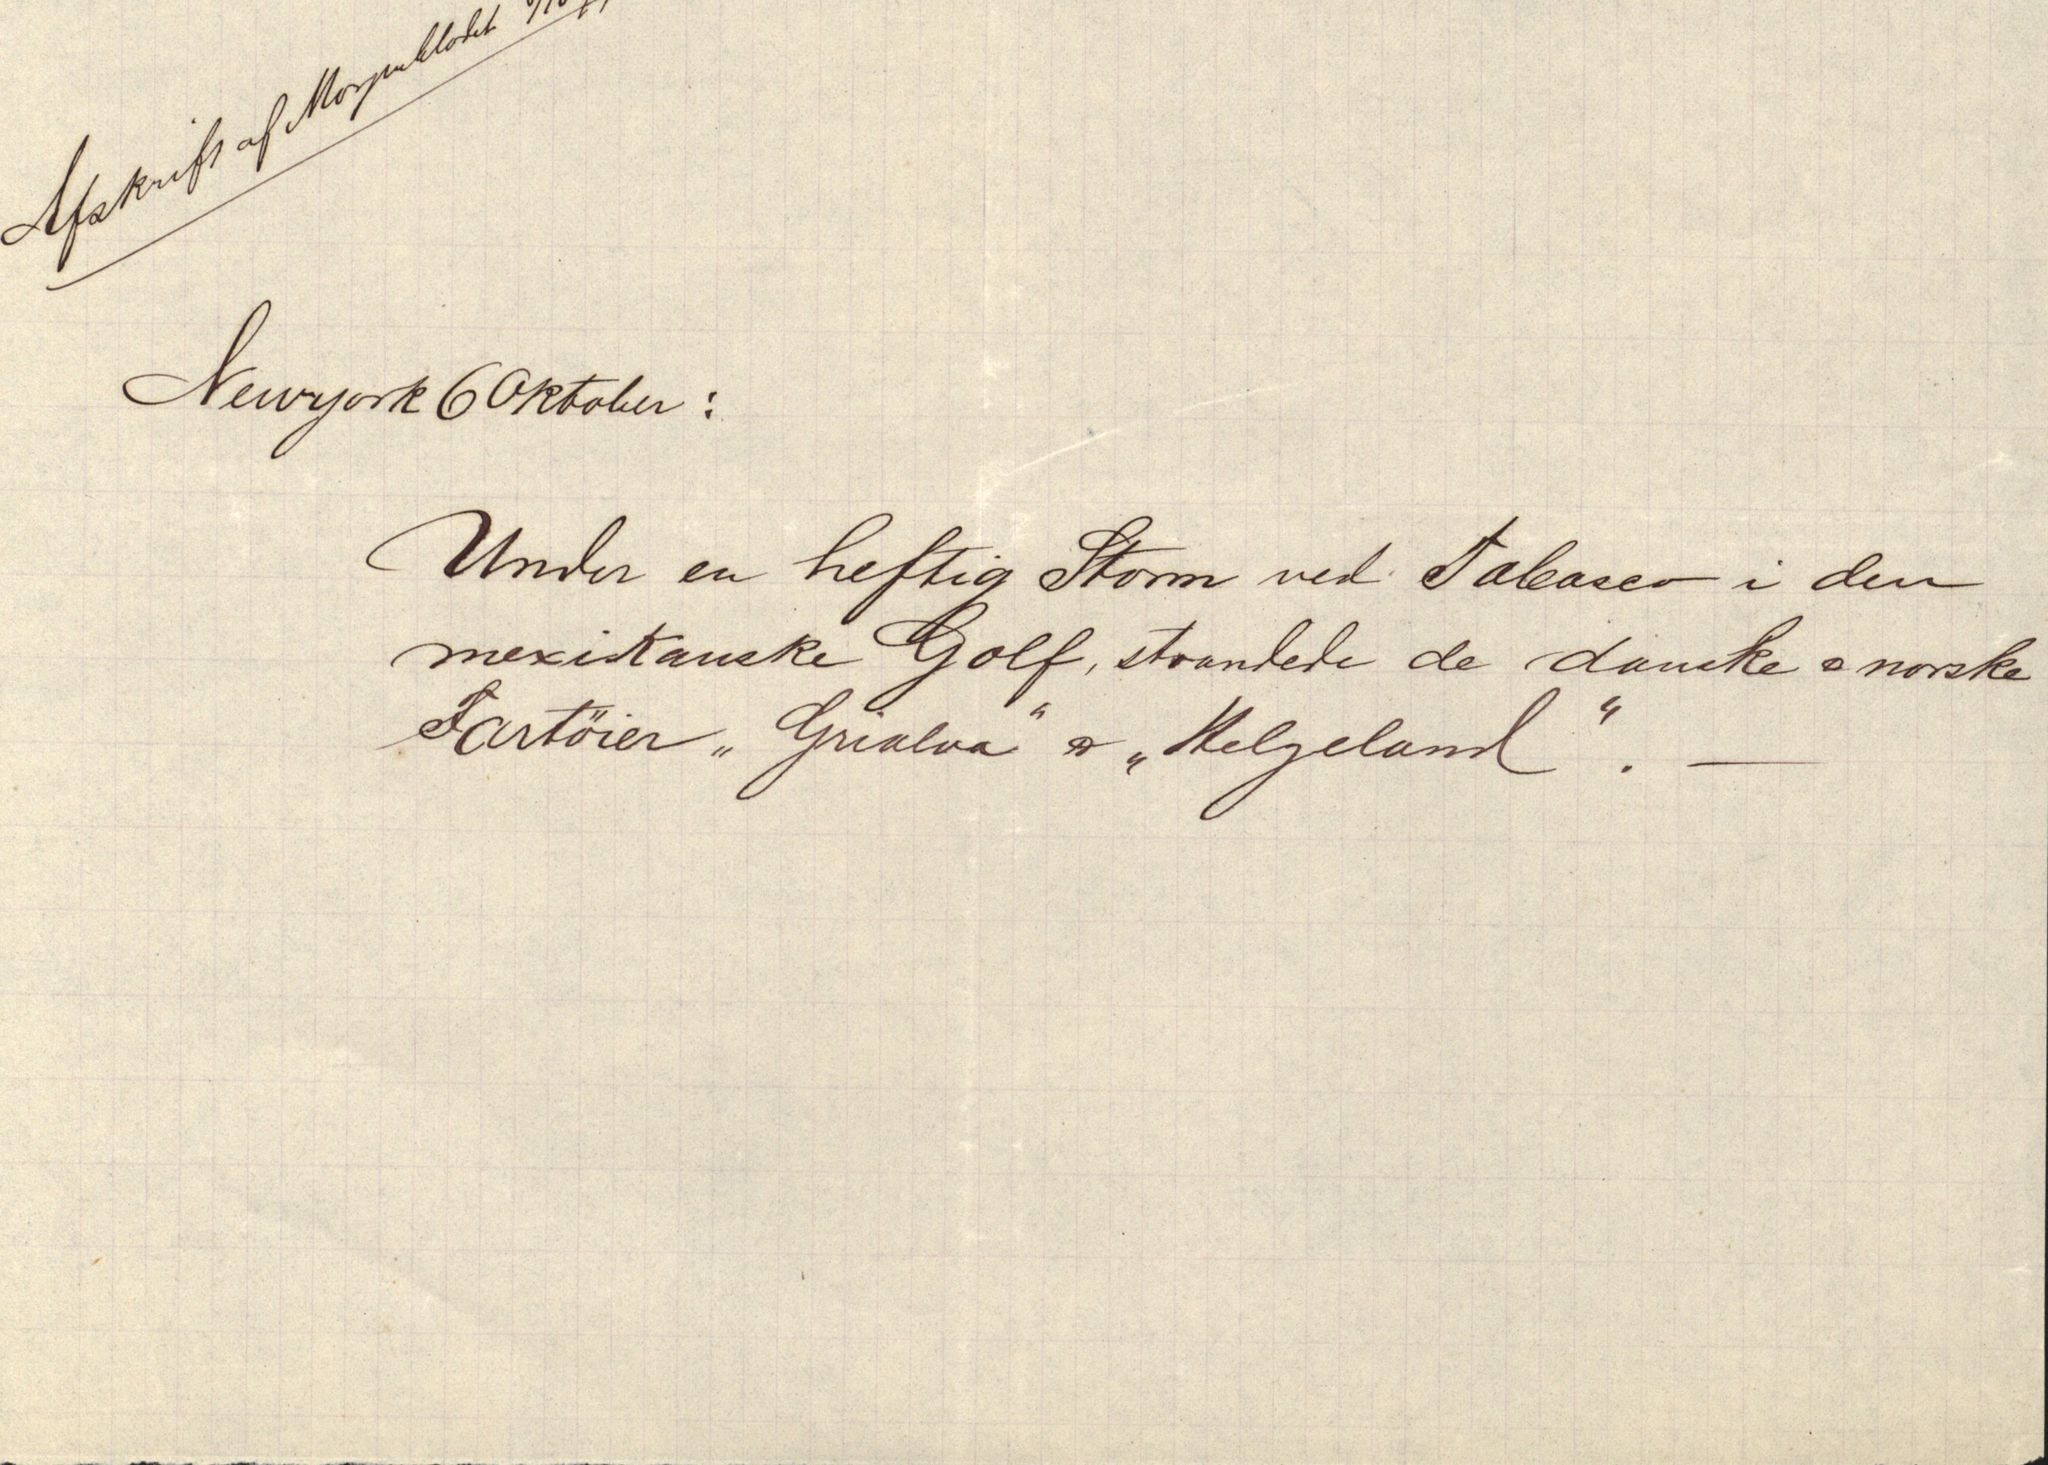 Afskrift af Morgenbladet
Newyork 6 Oktober :
Under en heftig Storm ved Tabasco i den
mexikanske Golf, strandede de danske & norske
Fartöier „Grialva“ & „Helgeland“. —